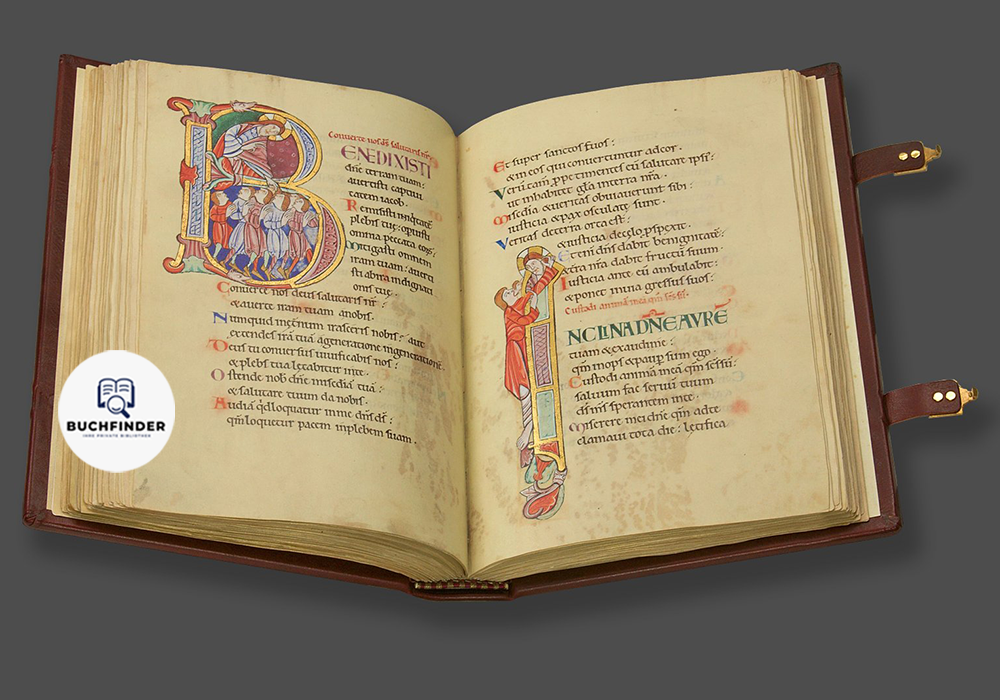 Conuerte nos ds salutaris nr
BENEDIXISTI
dne terram tuam:
auertisti captiui
tatem iacob.
Remisisti iniquitate
plebis tue: opuisti
omnia peccata eoꝝ:
Mitigasti omnem
iram tuam: auerti
sti ab ira indignati
onis tue.
Conuerte nos deus salutaris nr:
& auerte iram tuam a nobis.
Numquid in eternum irasceris nobis: aut
extendes ira tua a generatione in generatione
Deus tu conuersus uiuificabis nos:
& plebs tua letabitur in te.
Ostende nob dne misedia tua:
& salutare tuum da nobis.
Audia qd loquatur in me dns ds:
qm loquetur pacem in plebem suam.
Et super sanctos suos:
& in eos qui conuertuntur ad cor.
Veru tam ppe timentes eu salutare ipsi:
ut inhabitet gla in terra nra.
Misedia & ueritas obuiauerunt sibi:
iusticia & pax osculate sunt.
Veritas de terra orta est:
& iusticia de celo pspexit.
Eteni dns dabit benignitate:
& terra nra dabit fructu suum.
Iusticia ante eu ambulabit:
& ponet in uia gressus suos.
Custodi anima mea qm scs su.
INCLINA DNE AURE
tuam & exaudi me:
qm inops & paup sum ego.
Custodi anima mea qm scs su:
saluum fac seruu tuum
ds ms sperantem in te.
Miserere mei dne qm ad te
clamaui tota die: letifica
BUCHFINDER
IHRE PRIVATE BIBLIOTHEK